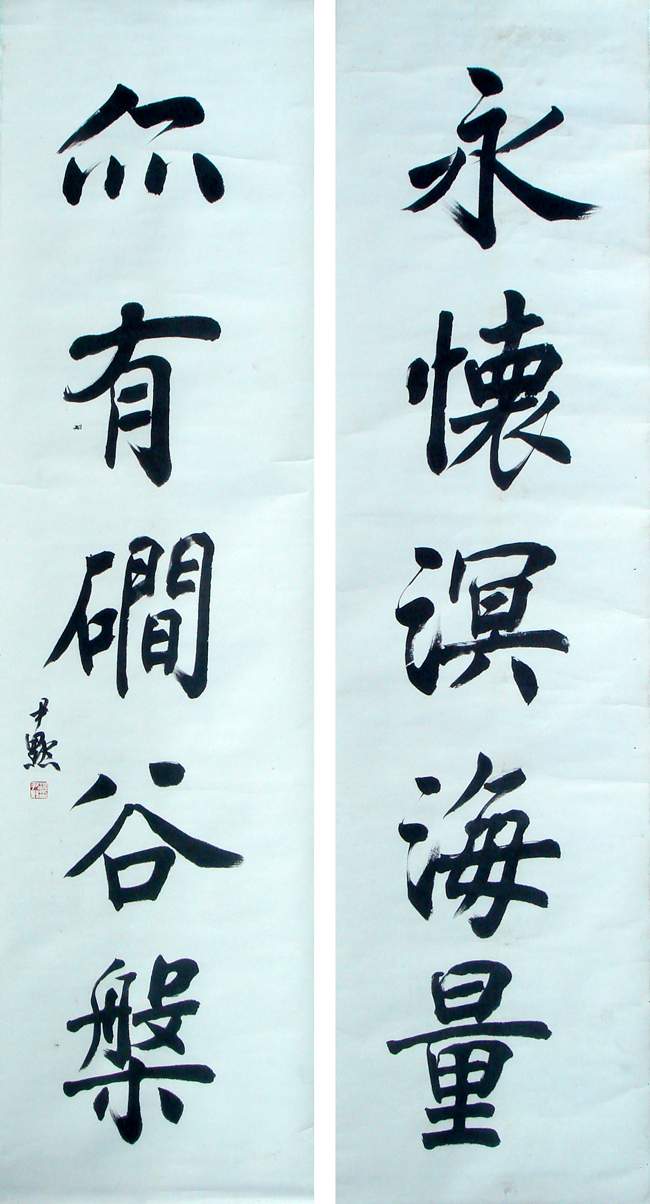 永懷溟海量
亦有磵谷槃
尹默